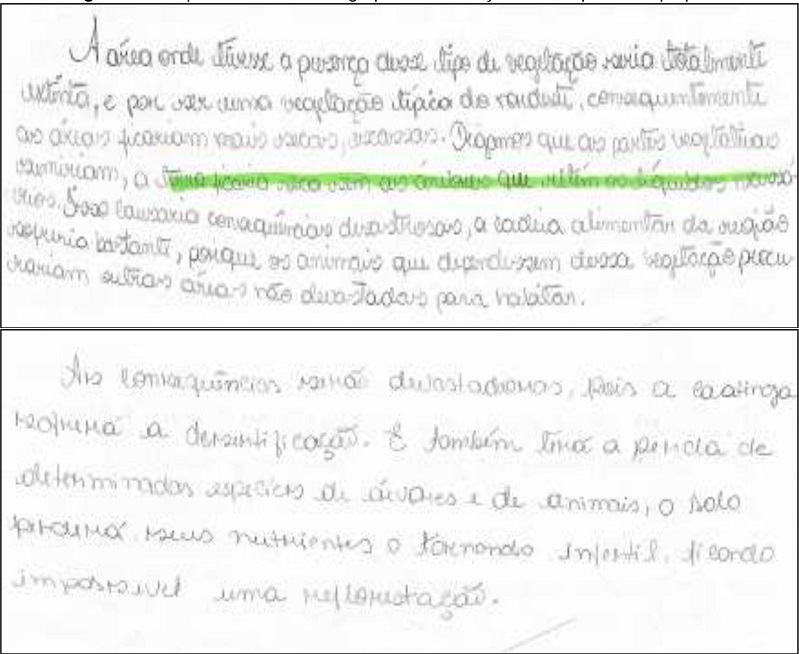 A área onde tivesse a presença desse tipo de vegetação seria totalmente
extinta, e por ser uma vegetação típica do nordeste, consequentemente
as áreas ficariam mais secas, escassas. Digamos que as partes vegetativas
sumiriam, a terra ficaria seca sem as árvores que retêm os líquidos necessá-
rios. Isso causaria consequências desastrosas, a cadeia alimentar da região
sofreria bastante, porque os animais que dependessem dessa vegetação procu-
rariam outras áreas não devastadas para habitar.
As consequências serão devastadoras, pois a caatinga
sofrerá a desertificação. E também terá a perda de
determinadas espécies de árvores e de animais, o solo
perderá seus nutrientes o tornando infertil, ficando
impossivel uma reflorestação.